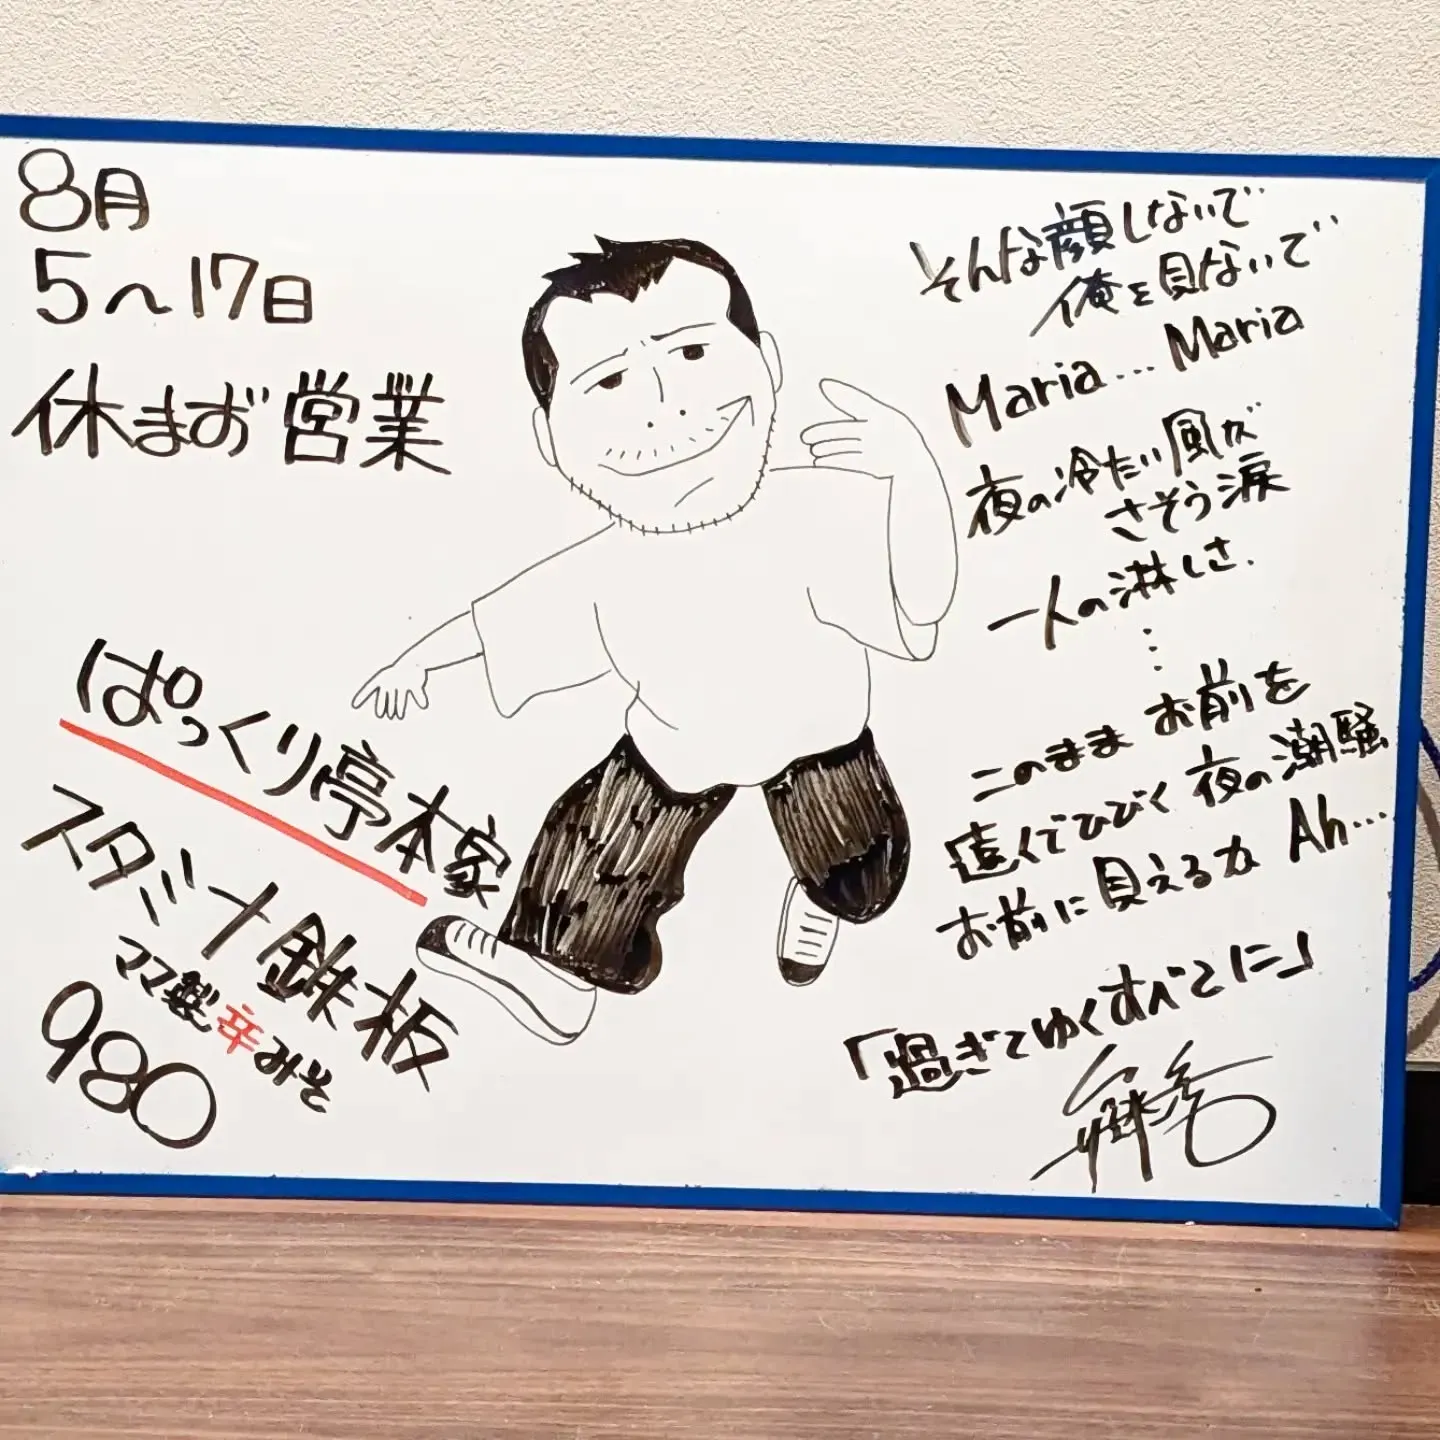 8月
5〜17日
休まず営業
ぱっくり亭本家
スタミナ鉄板
ママ製辛みそ
980
そんな顔しないで
俺を見ないで
Maria...Maria
夜の冷たい風が
さそう涙
一人の淋しさ
⋮
このままお前を
遠くでひびく夜の潮騒
お前に見えるか Ah...
「過ぎてゆくすべてに」